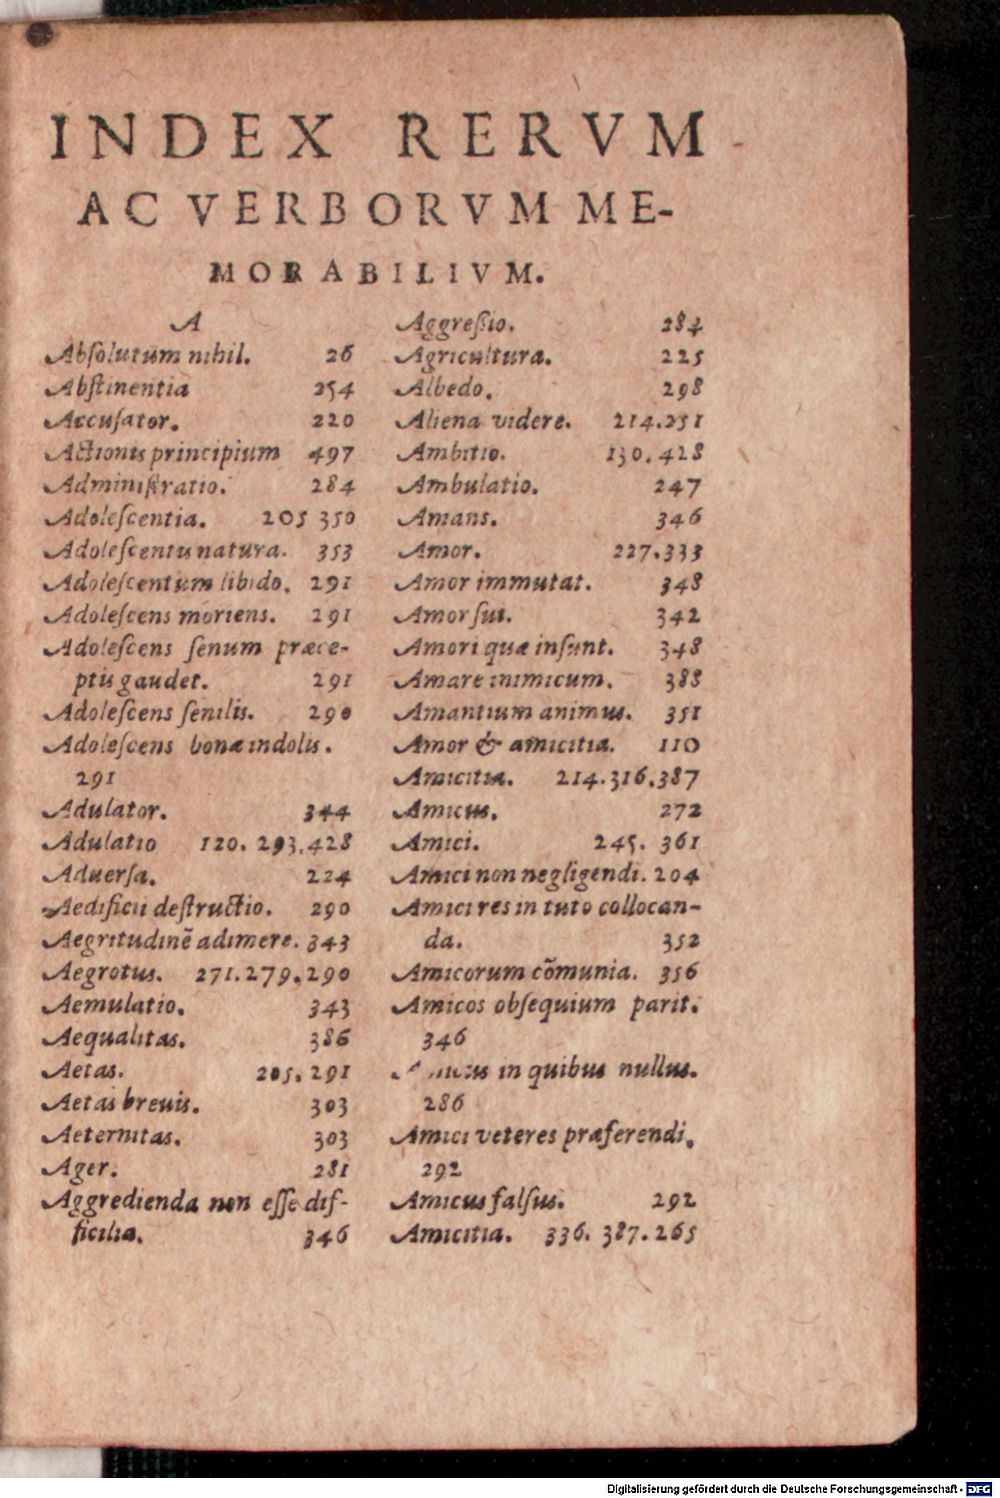 INDEX RERVM
AC VERBORVM ME-
MORABILIVM.
A
Abſolutum nihil. 26
Abſtinentia 254
Accuſator. 220
Actionis principium 497
Adminiſtratio. 284
Adoleſcentia. 205 350
Adoleſcentū natura. 353
Adoleſcentum libido. 291
Adoleſcens moriens. 291
Adoleſcens ſenum præce-
ptis gaudet. 291
Adoleſcens ſenilis. 290
Adoleſcens bonæ indolis.
291
Adulator. 344
Adulatio 120. 293.428
Aduerſa. 224
Aedificii deſtructio. 290
Aegritudinē adimere. 343
Aegrotus. 271.279.290
Aemulatio. 343
Aequalitas. 386
Aetas. 205. 291
Aetas breuis. 303
Aeternitas. 303
Ager. 281
Aggredienda non eſſe dif-
ficilia. 346
Aggreßio. 284
Agricultura. 225
Albedo. 298
Aliena videre. 214.251
Ambitio. 130.428
Ambulatio. 247
Amans. 346
Amor. 227.333
Amor immutat. 348
Amor ſui. 342
Amori quæ inſunt. 348
Amare inimicum. 388
Amantium animus. 351
Amor & amicitia. 110
Amicitia. 214.316.387
Amicus. 272
Amici. 245. 361
Amici non negligendi. 204
Amici res in tuto collocan-
da. 352
Amicorum cōmunia. 356
Amicos obſequium parit.
346
in quibus nullus.
286
Amici veteres præferendi.
292
Amicus falſus. 292
Amicitia. 336. 387.265
Digitalisierung gefördert durch die Deutsche Forschungsgemeinschaft - DFG